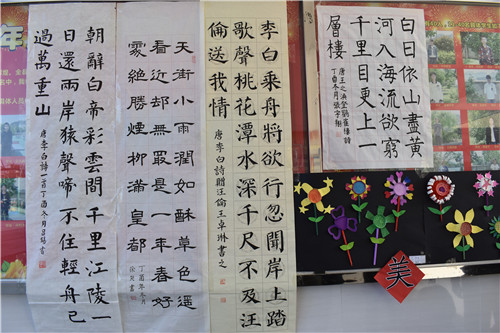 白日依山盡黄
河入海流欲窮
千里目更上一
層樓
唐王之渙登鸛雀樓詩
丁酉冬月張宇翔
李白乘舟將欲行忽聞岸上踏
歌聲桃花潭水深千尺不及汪
倫送我情
唐李白詩贈汪倫王卓琳書之
天街小雨潤如酥草色遥
看近都無最是一年春好
處絶勝煙柳滿皇都
丁酉年冬月
朝辭白帝彩雲間千里江陵一
日還兩岸猿聲啼不住輕舟已
過萬重山
唐李白詩一首丁酉冬月
美
年